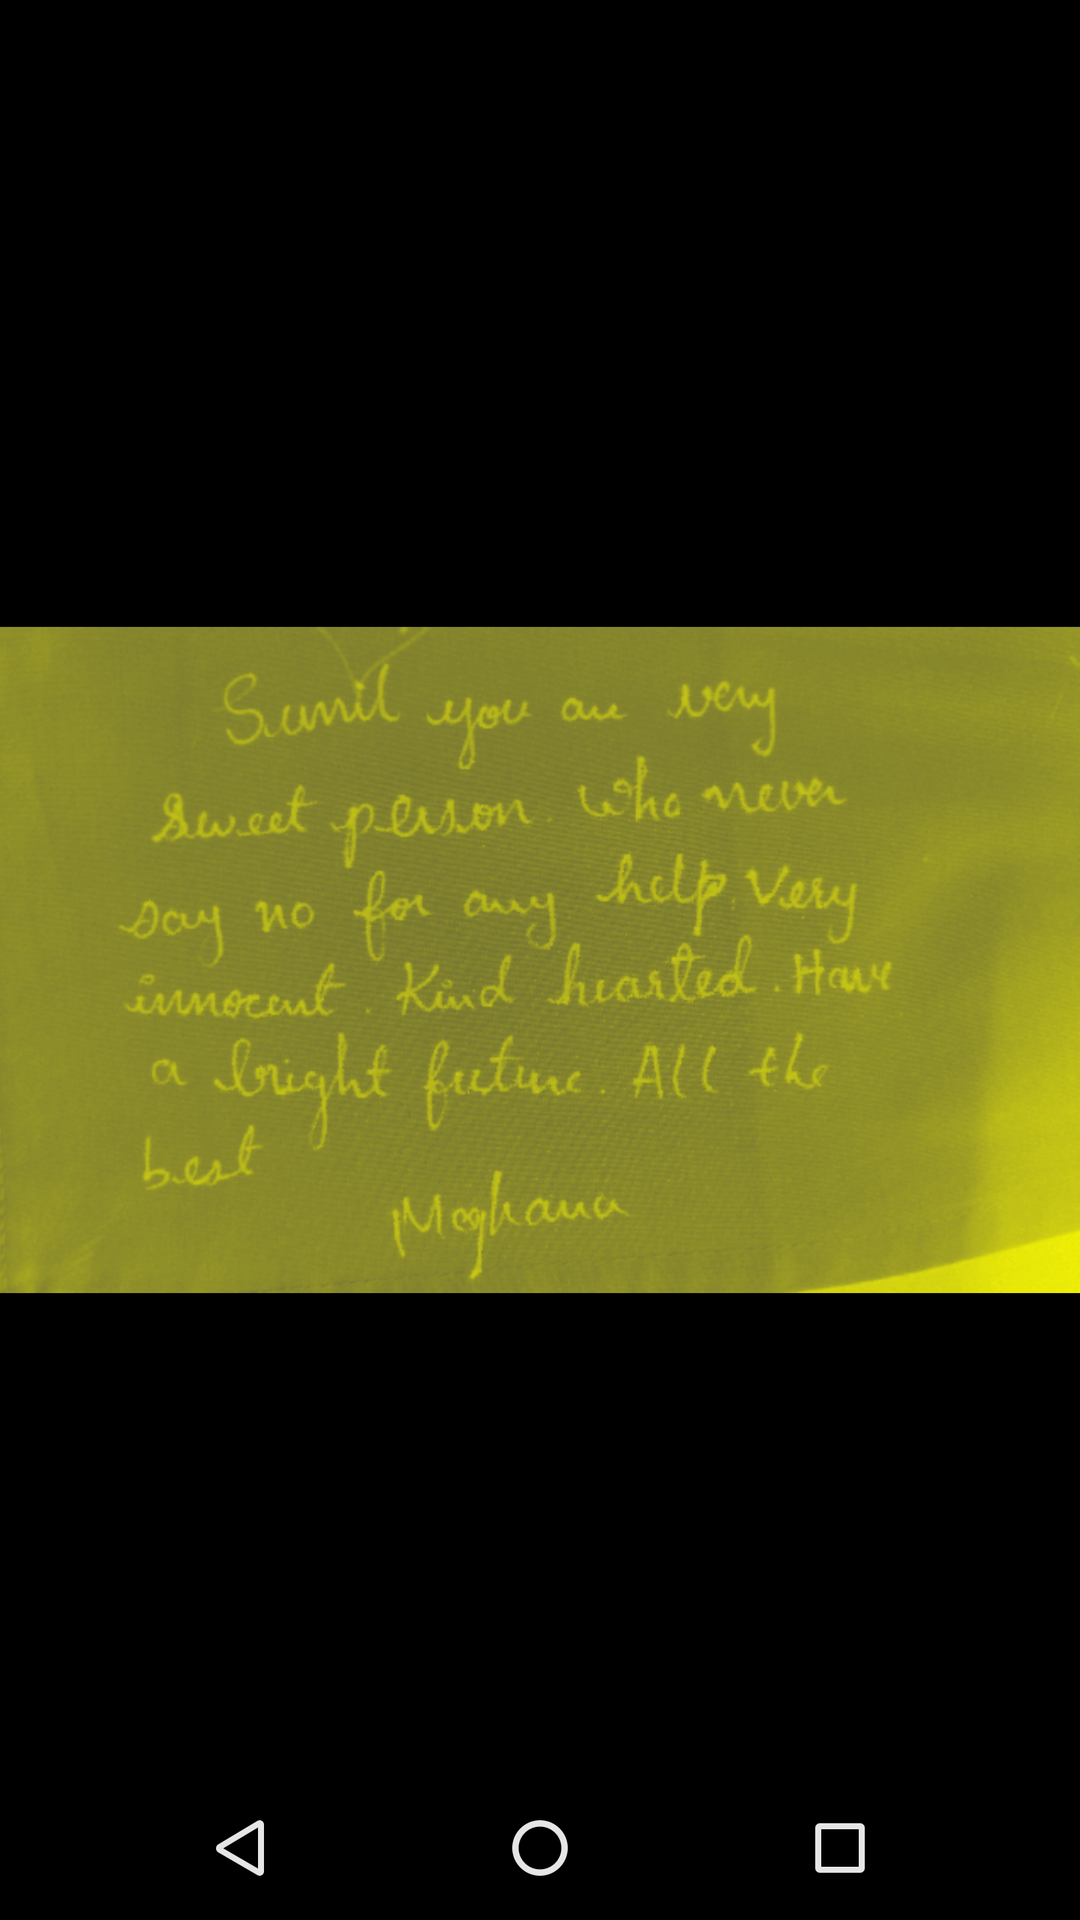 Sunil you are very
sweet person. Who never
say no for any help. Very
innocent. Kind hearted. Have
a bright future. All the
best
Meghana